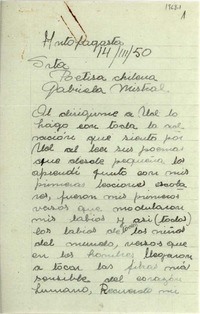 Antofagasta
14/III/50
Srta
Poetisa chilena
Gabriela Mistral.
Al dirigirme a Ud lo
hago con toda la admi
ración que siento por
Ud al leer sus poemas
que desde pequeña los
aprendí junto con mis
primeras lecciones escola
res, fueron mis primeros
versos que modularon
mis labios y asi (todos)
los labios de los niños
del mundo, versos que
en los hombres llegaron
a tocar las fibras más
sensible del corazón
humano, Recuerdo mi